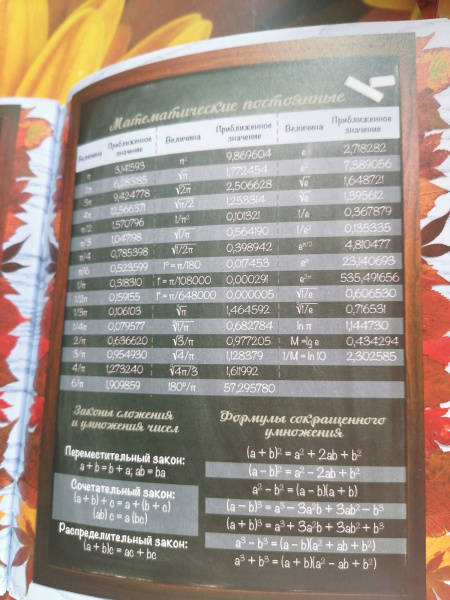 Математические постоянные
Величина Приближенное значение Величина Приближенное значение Величина Приближенное значение
π 3,141593 π² 9,869604 e 2,718282
2π 6,283185 √π 1,772454 e² 7,389056
3π 9,424778 √2π 2,506628 √e 1,648721
4π 12,566371 √π/2 1,253314 1,395612
π/2 1,570796 1/π² 0,101321 1/e 0,367879
π/3 1,04798 √1/π 0,564190 1/e² 0,135335
π/4 0,785398 √1/2π 0,398942 e^π/2 4,810477
π/6 0,523599 1° = π/180 0,017453 e^π 23,140693
1/π 0,318310 1' = π/108000 0,000291 e^2π 535,491656
1/2π 0,159155 1" = π/648000 0,000005 √1/e 0,606530
1/3π 0,106103 ∛π 1,464592 ∛1/e 0,716531
1/4π 0,079577 ∛1/π 0,682784 ln π 1,144730
2/π 0,636620 π/3 0,977205 M = lg e 0,434294
3/π 0,954930 √4/π 1,128379 1/M = ln 10 2,302585
4/π 1,273240 ∛4/π 1,611992
6/π 1,909859 180°/π 57,295780
Законы сложения
и умножения чисел
Переместительный закон:
a + b = b + a; ab = ba
Сочетательный закон:
(a + b) + c = a + (b + c)
(ab) c = a (bc)
Распределительный закон:
(a + b)c = ac + bc
Формулы сокращенного
умножения
(a + b)² = a² + 2ab + b²
(a – b)² = a² – 2ab + b²
a² – b² = (a – b)(a + b)
(a – b)³ = a³ – 3a²b + 3ab² – b³
(a + b)³ = a³ + 3a²b + 3ab² + b³
a³ – b³ = (a – b)(a² + ab + b²)
a³ + b³ = (a + b)(a² – ab + b²)